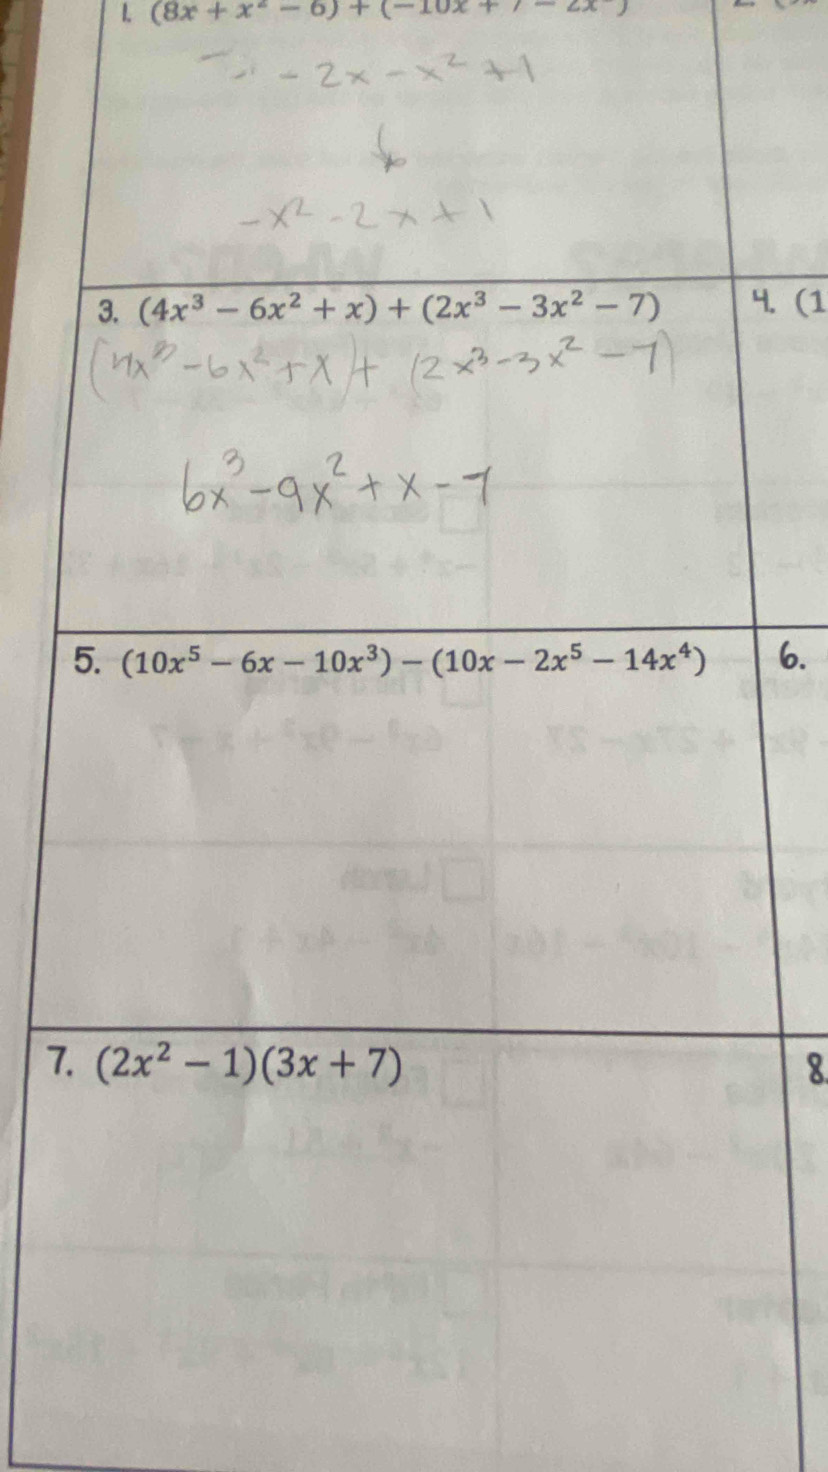 1. (8x + x² − 6) + (−10x + 7 − 2x²)
- 2x - x² + 1
-x² - 2x + 1
3. (4x³ − 6x² + x) + (2x³ − 3x² − 7)
4. (1
(4x³ - 6x² + x) + (2x³ - 3x² - 7)
6x³ - 9x² + x - 7
5. (10x⁵ − 6x − 10x³) − (10x − 2x⁵ − 14x⁴)
6.
7. (2x² − 1)(3x + 7)
8.